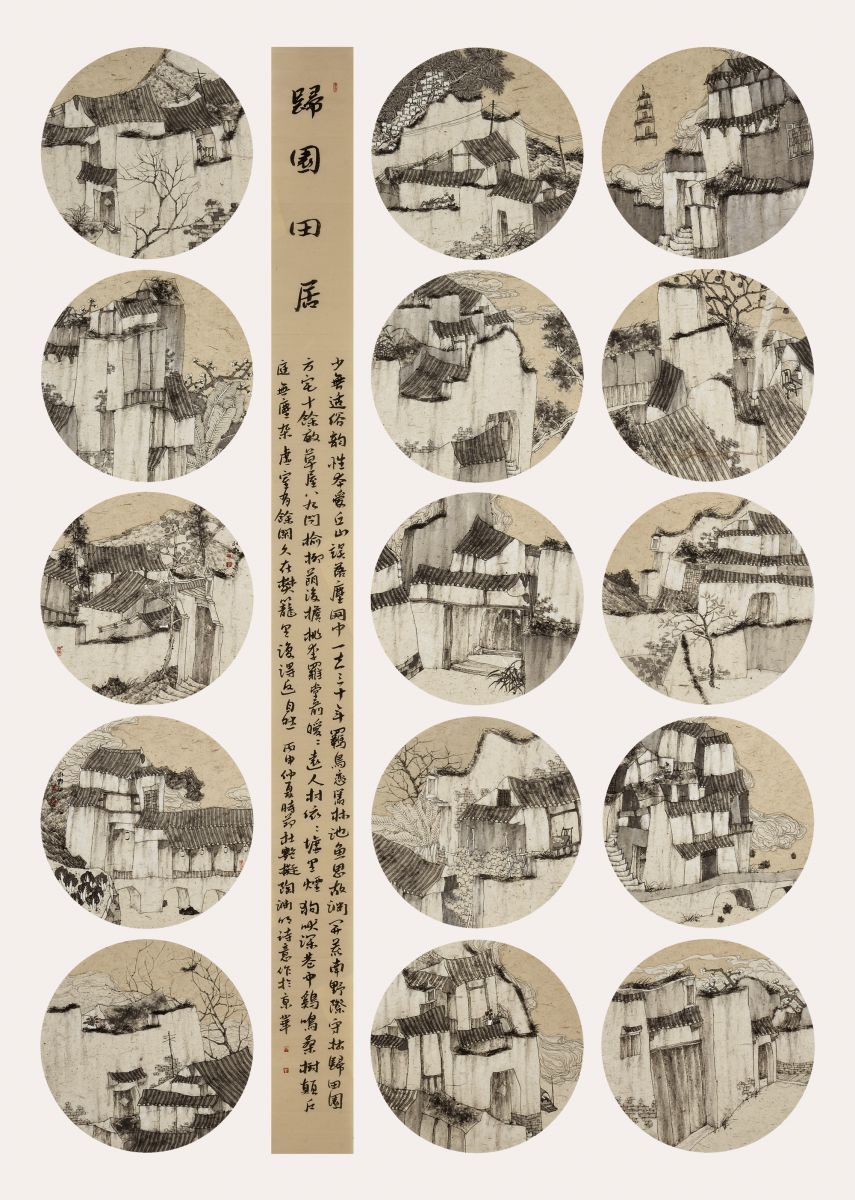 歸園田居
少無适俗韵性本愛丘山誤落塵网中一去三十年羈鳥恋舊林池魚思故渊开荒南野際守拙歸田園
方宅十餘畝草屋八九间榆柳蔭後簷桃李羅堂前曖〻遠人村依〻墟里煙狗吠深巷中鷄鳴桑樹顛户
庭無塵杂虚室有餘闲久在樊籠里復得返自然丙申仲夏時节杜擬陶渊明诗意作於京華